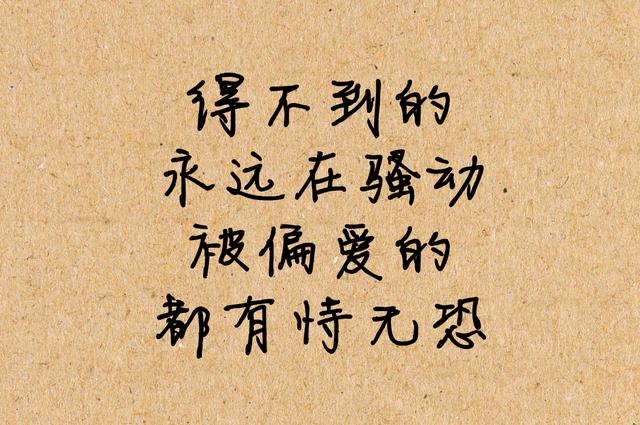 得不到的
永远在骚动
被偏爱的
都有恃无恐